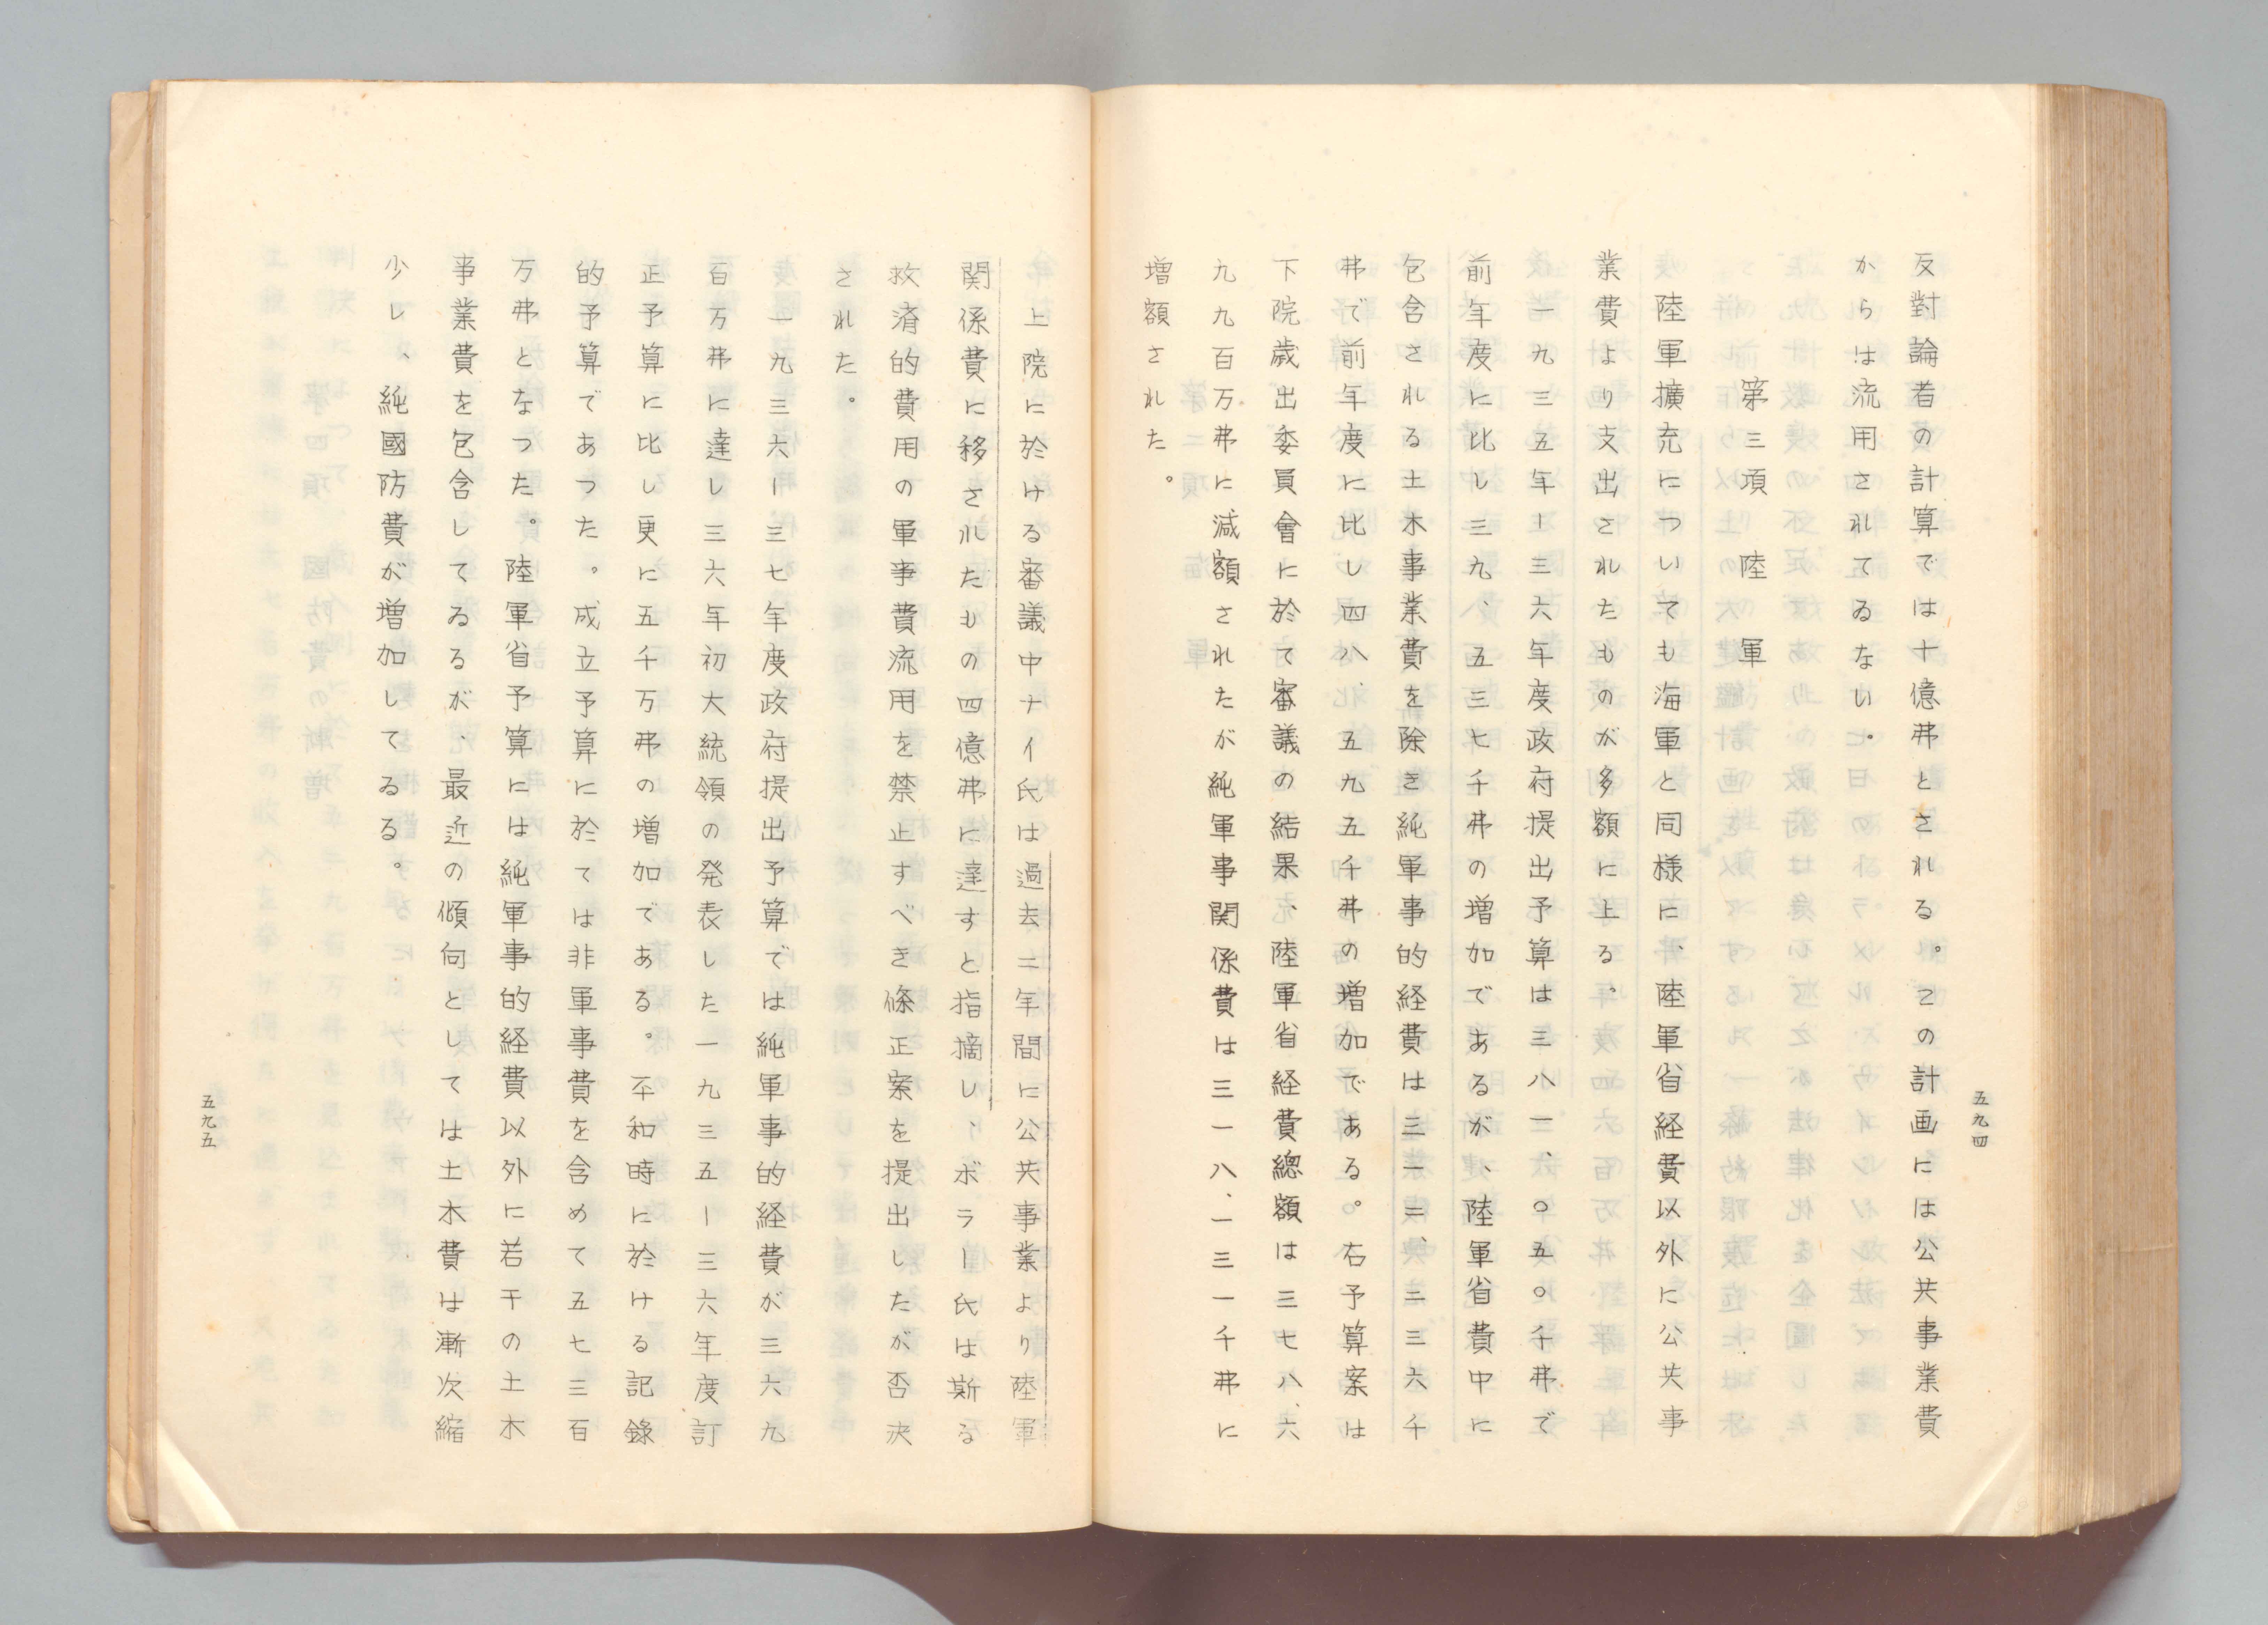 五九四
反對論者の計算では十億弗とされる。この計画には公共事業費
からは流用されてゐない。
第三項　陸軍
陸軍擴充についても海軍と同様に、陸軍省経費以外に公共事
業費より支出されたものが多額に上る。
一九三五年ー三六年度政府提出予算は三八一、〇五〇千弗で
前年度に比し三九、五三七千弗の増加であるが、陸軍省費中に
包含される土木事業費を除き純軍事的経費は三一三、三三六千
弗で前年度に比し四八、五九五千弗の増加である。右予算案は
下院歳出委員會に於て審議の結果、陸軍省経費總額は三七八、六
九九百万弗に減額されたが純軍事関係費は三一八、一三一千弗に
増額された。
上院に於ける審議中ナイ氏は過去二年間に公共事業より陸軍
関係費に移されたもの四億弗に達すと指摘し、ボラー氏は斯る
救済的費用の軍事費流用を禁止すべき條正案を提出したが否決
された。
一九三六ー三七年度政府提出予算では純軍事的経費が三六九
百万弗に達し三六年初大統領の発表した一九三五ー三六年度訂
正予算に比し更に五千万弗の増加である。平和時に於ける記錄
的予算であつた。成立予算に於ては非軍事費を含めて五七三百
万弗となつた。陸軍省予算には純軍事的経費以外に若干の土木
事業費を包含してゐるが、最近の傾向としては土木費は漸次縮
少し、純國防費が増加してゐる。
五九五